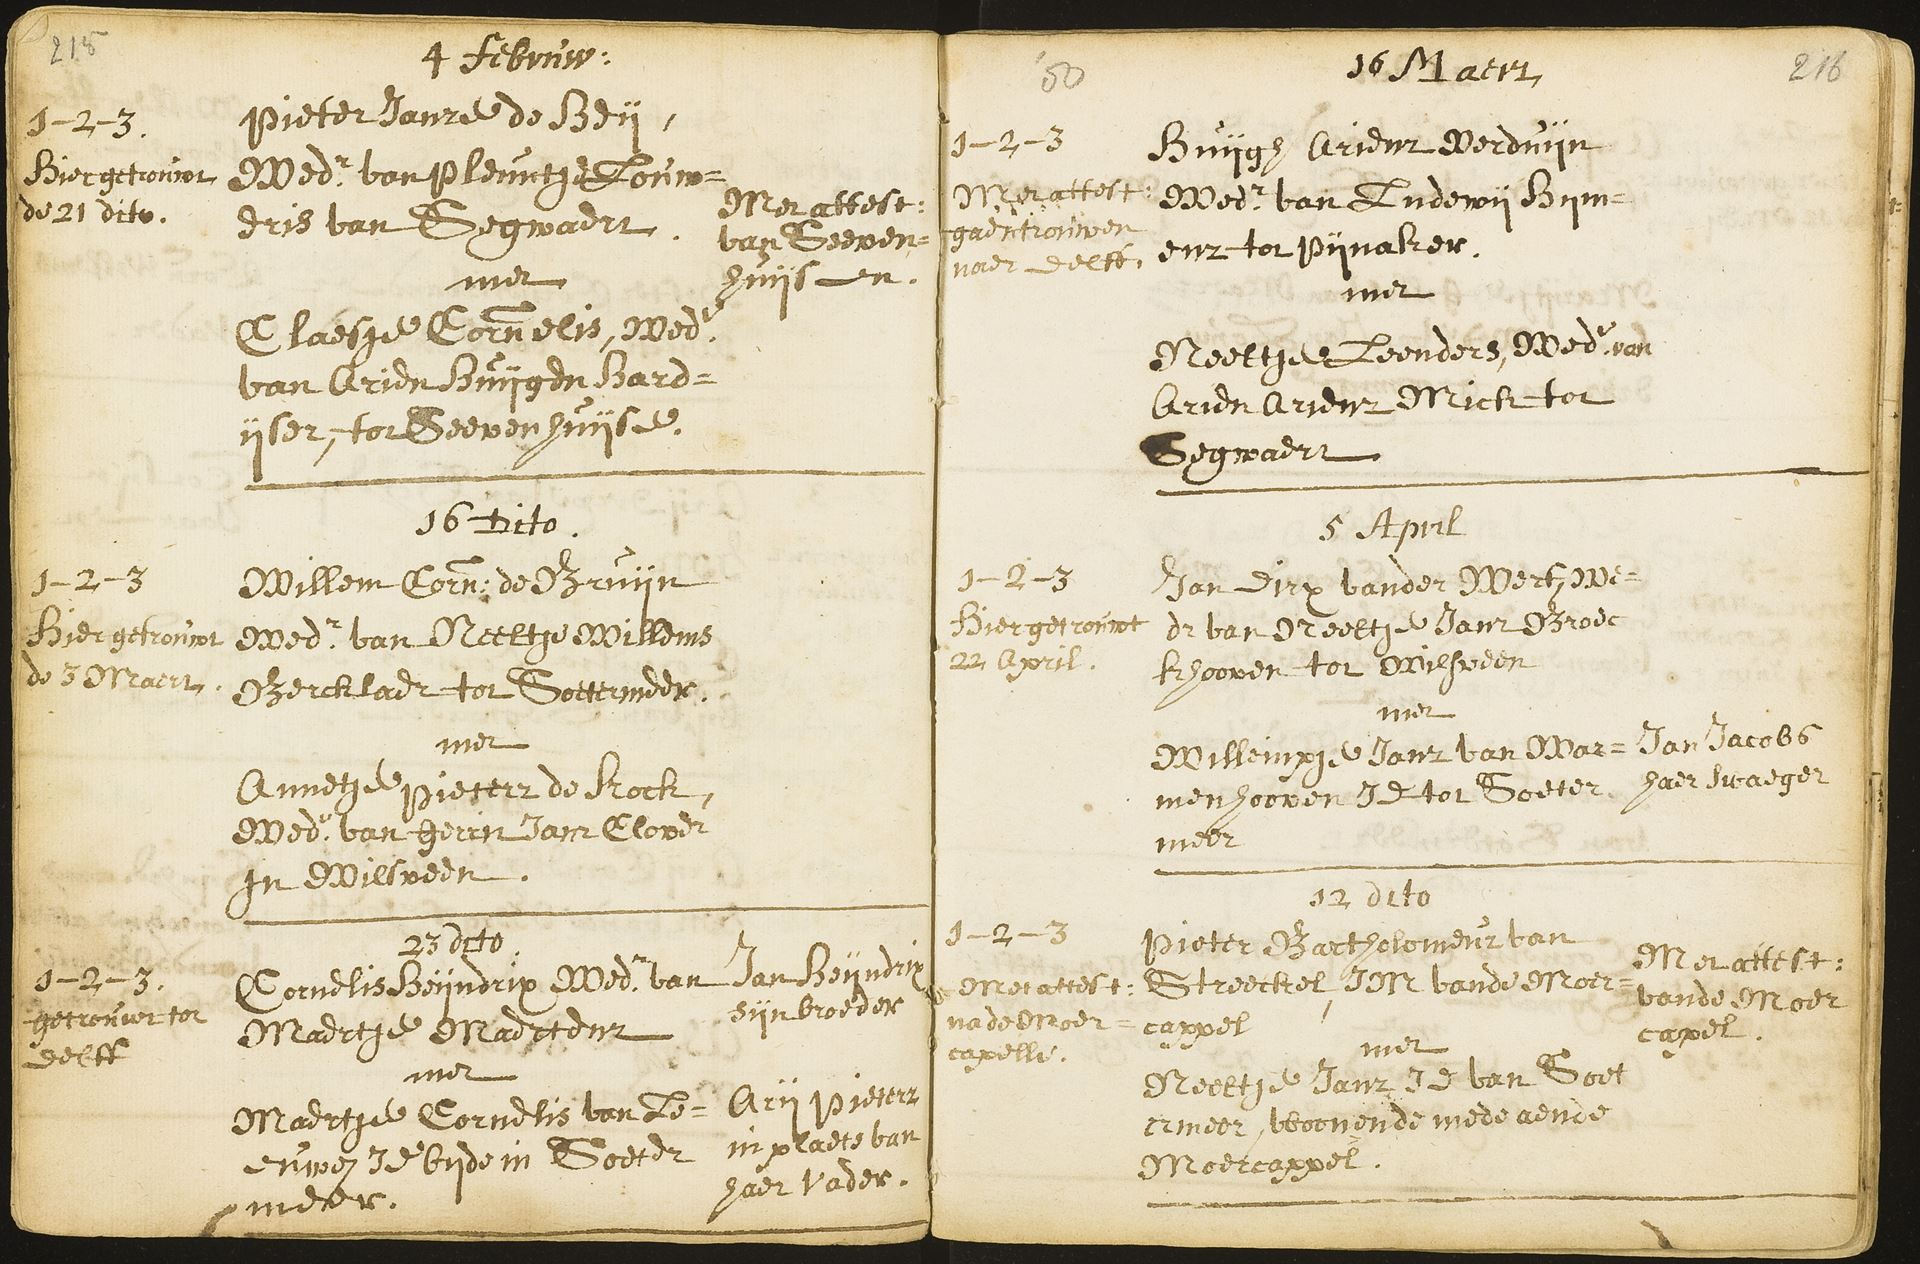 215
4 februw:
1-2-3.
Hier getrouwt
de 21 dito.
Pieter Janze de Heij,
Wedr. van Pleuntje Louw=
eris van Segwaert.
Met attest:
van Seeven=
huijsen.
met
Claesje Cornelis, Wede.
van Arien Huijgen Hard=
ijser, tot Seevenhuijse.
16 Dito.
1-2-3
Hier getrouwt
de 3 Maert.
Willem Corn: de Bruijn
Wedr. van Neeltje Willems
Bercklaer tot Soetermeer.
met
Annetje Pieterz de Kock,
Wede. van Gerrit Janz Clover
in Wilsveen.
23 dito.
1-2-3.
getrouwt tot
Delft
Cornelis Heijndrix Wedr. van
Maertje Maertenz
Jan Heijndrix
sijn broeder
met
Maertje Cornelis van Le=
euwe, JD beijde in Soeter
meer.
Arij Pieterz
in plaets van
haer Vader.
50
216
16 Maert
1-2-3
Met attest:
gaen trouwen
naer Delft.
Huijgh Arienz Verduijn
Wedr. van Ludewij Hijm=
enz tot Pijnaker.
met
Neeltje Leenders, Wede. van
Arien Arienz Mick tot
Segwaert
5 April
1-2-3
Hier getrouwt
22 April.
Jan Dirx vander Werf, We=
dr van Neeltje Janz Broec
khooven tot Wilsveen
met
Willempje Janz van War=
menhooven JD tot Soeter
meer
Jan Jacobs
haer swaeger
12 dito
1-2-3
Met attest:
na de Moer=
capelle.
Pieter Bartholomeuz van
Streeckel, JM vande Moer=
cappel
Met attest:
vande Moer
capel.
met
Neeltje Janz JD van Soet
ermeer, woonende mede aende
Moercappel.